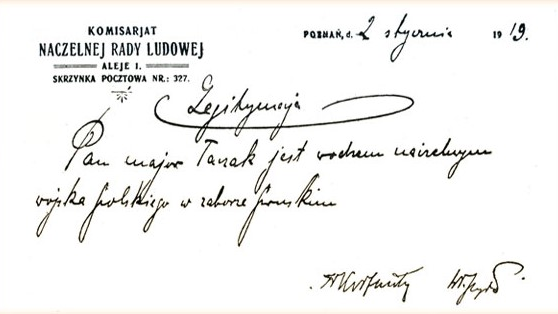 KOMISARJAT
NACZELNEJ RADY LUDOWEJ
ALEJE I.
SKRZYNKA POCZTOWA NR.: 327.
POZNAŃ, d. 2 stycznia 1919.
Legitymacja
Pan major Taczak jest wodzem naczelnym
wojska polskiego w zaborze pruskim
W Korfanty